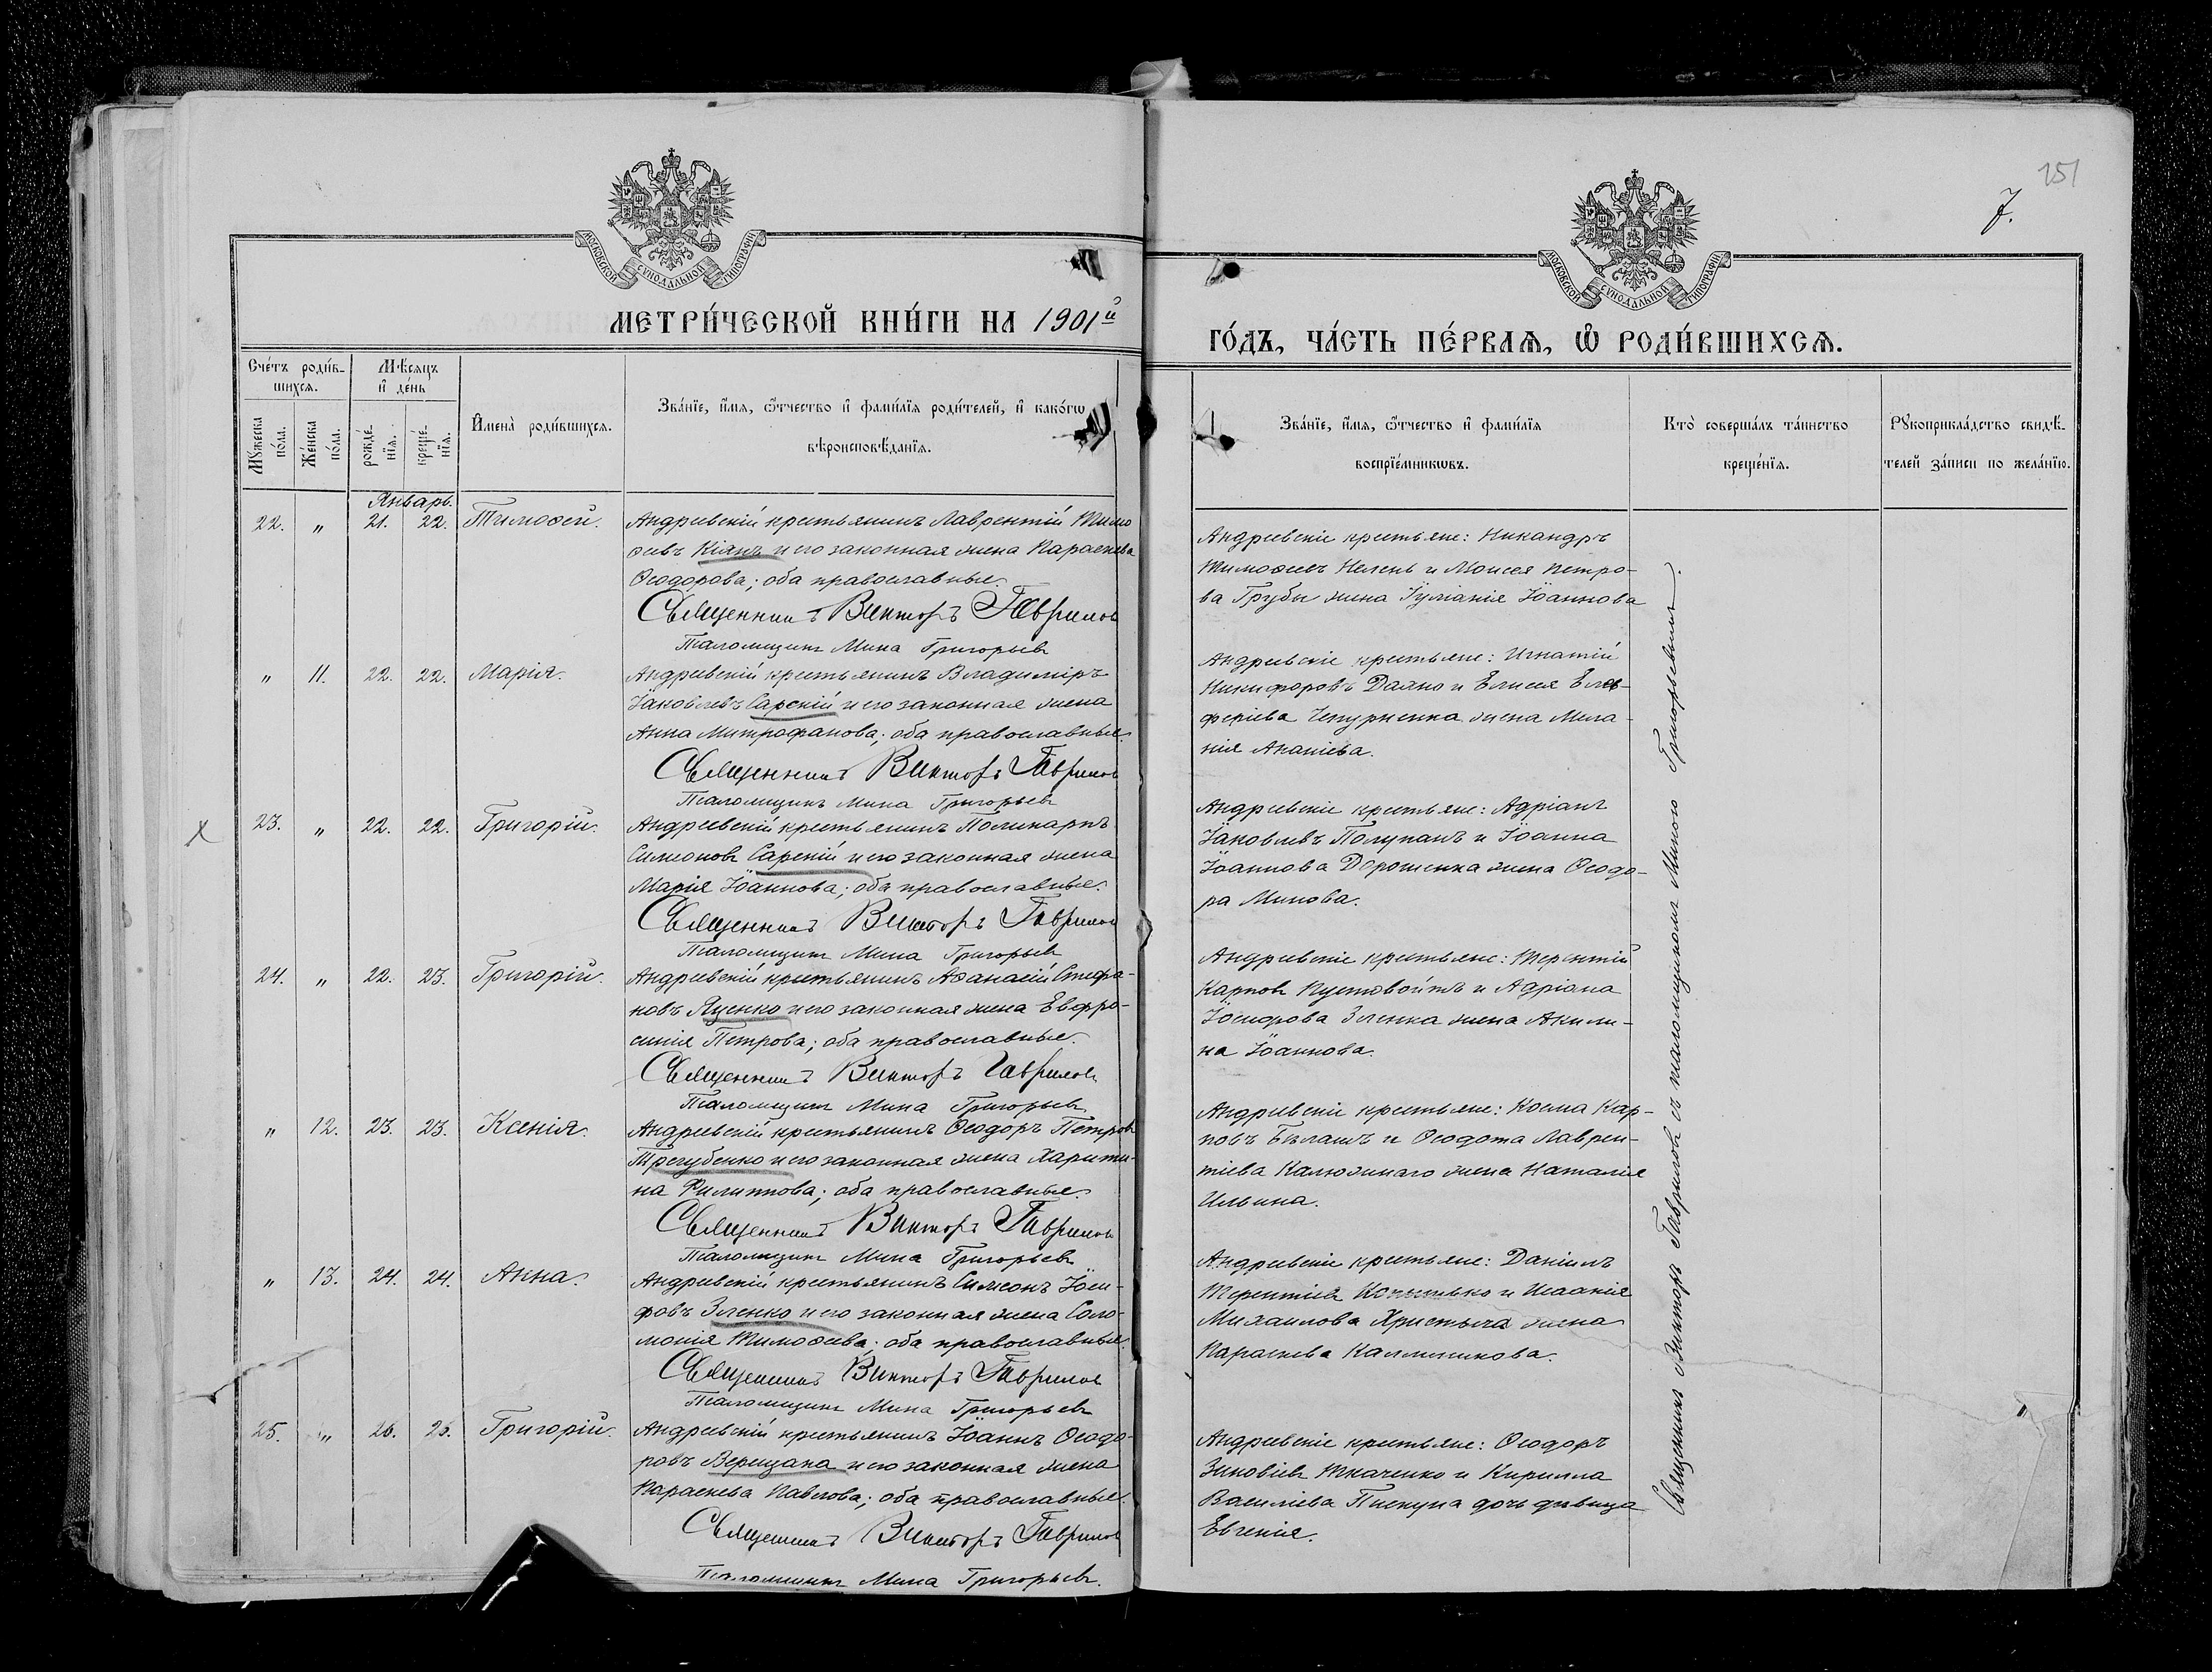 251
7.
МОСКОВСКОЙ СѴНОДАЛЬНОЙ ТИПОГРАФІИ
МОСКОВСКОЙ СѴНОДАЛЬНОЙ ТИПОГРАФІИ
МЕТРИ́ЧЕСКОЙ КНИ́ГИ НА 1901й
ГО́ДЪ, ЧА́СТЬ ПЕ́РВАѦ, Ѿ РОДИ́ВШИХСѦ.
Сче́тъ роди́в-
шихсѧ.
Мѣсѧцъ
и де́нь
Мꙋжеска по́ла.
Же́нска по́ла.
рожде́-
нїѧ.
креще́-
нїѧ.
Имена̀ роди́вшихсѧ.
Зва́нїе, и́мѧ, ѻ҆́тчество и҆ фами́лїѧ роди́телей, и҆ како́гѡ
вѣроисповѣ́данїѧ.
Зва́нїе, и́мѧ, ѻ҆́тчество и҆ фами́лїѧ
воспрїе́мникѡвъ.
Кто̀ соверша́лъ та́инство
креще́нїѧ.
Рꙋкоприкла́дство свидѣ́-
телей за́писи по жела́нїю.
Январь.
22. " 21. 22. Тимоѳей.
Андреевскій крестьянинъ Лаврентій Тимо
ѳеевъ Кіянъ и его законная жена Параскева
Ѳеодорова; оба православные.
Священникъ Викторъ Гаврилов
Псаломщикъ Мина Григорьев
Андреевскіе крестьяне: Никандръ
Тимоѳеевъ Нелень и Моисея Петро-
ва Грубы жена Іуліанія Іоаннова
" 11. 22. 22. Марія.
Андреевскій крестьянинъ Владиміръ
Іаковлевъ Сарскій и его законная жена
Анна Митрофанова; оба православные.
Священникъ Викторъ Гаврилов
Псаломщикъ Мина Григорьев
Андреевскіе крестьяне: Игнатій
Никифоровъ Даяко и Елисея Елев-
ферьева Чепурненка жена Мела-
нія Ананіева.
X 23. " 22. 22. Григорій.
Андреевскій крестьянинъ Поликарпъ
Симеоновъ Сарскій и его законная жена
Марія Іоаннова; оба православные.
Священникъ Викторъ Гаврилов
Псаломщикъ Мина Григорьев
Андреевскіе крестьяне: Адріанъ
Іаковлевъ Полупанъ и Іоанна
Іоаннова Дорошенка жена Ѳеодо-
ра Минова.
24. " 22. 23. Григорій.
Андреевскій крестьянинъ Аѳанасій Стефа-
новъ Яценко и его законная жена Евфро-
синія Петрова; оба православные.
Священникъ Викторъ Гаврилов
Псаломщикъ Мина Григорьев
Андреевскіе крестьяне: Терентій
Карповъ Пустовойтъ и Адріана
Іосифова Зленка жена Акили-
на Іоаннова.
" 12. 23. 23. Ксенія.
Андреевскій крестьянинъ Ѳеодоръ Петров
Трегубенко и его законная жена Харити-
на Филиппова; оба православные.
Священникъ Викторъ Гаврилов
Псаломщикъ Мина Григорьев
Андреевскіе крестьяне: Косма Кар-
повъ Билашъ и Ѳеодота Лаврен-
тіева Калюжнаго жена Наталія
Ильина.
" 13. 24. 24. Анна.
Андреевскій крестьянинъ Симеонъ Іоси-
фовъ Зленко и его законная жена Соло-
монія Тимоѳеева; оба православные.
Священникъ Викторъ Гаврилов
Псаломщикъ Мина Григорьев
Андреевскіе крестьяне: Даніилъ
Терентіевъ и Исаакія
Михаилова Христыча жена
Параскева Каллиникова.
25. " 26. 26. Григорій.
Андреевскій крестьянинъ Іоаннъ Ѳеодо-
ровъ Верещака и его законная жена
Параскева Павлова; оба православные.
Священникъ Викторъ Гаврилов
Псаломщикъ Мина Григорьев.
Андреевскіе крестьяне: Ѳеодоръ
Зиновіевъ Ткаченко и Кирилла
Василіева Пискуна дочь дѣвица
Евгенія.
Священникъ Викторъ Гавриловъ съ псаломщикомъ Миною Григорьевымъ.